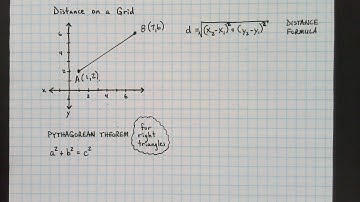 Distance on a Grid
B (7,6)
6
4
2
A (1,2)
x
2
4
6
x
y
d = √(x₂-x₁)² + (y₂-y₁)²
DISTANCE
FORMULA
PYTHAGOREAN THEOREM
a² + b² = c²
for
right
triangles